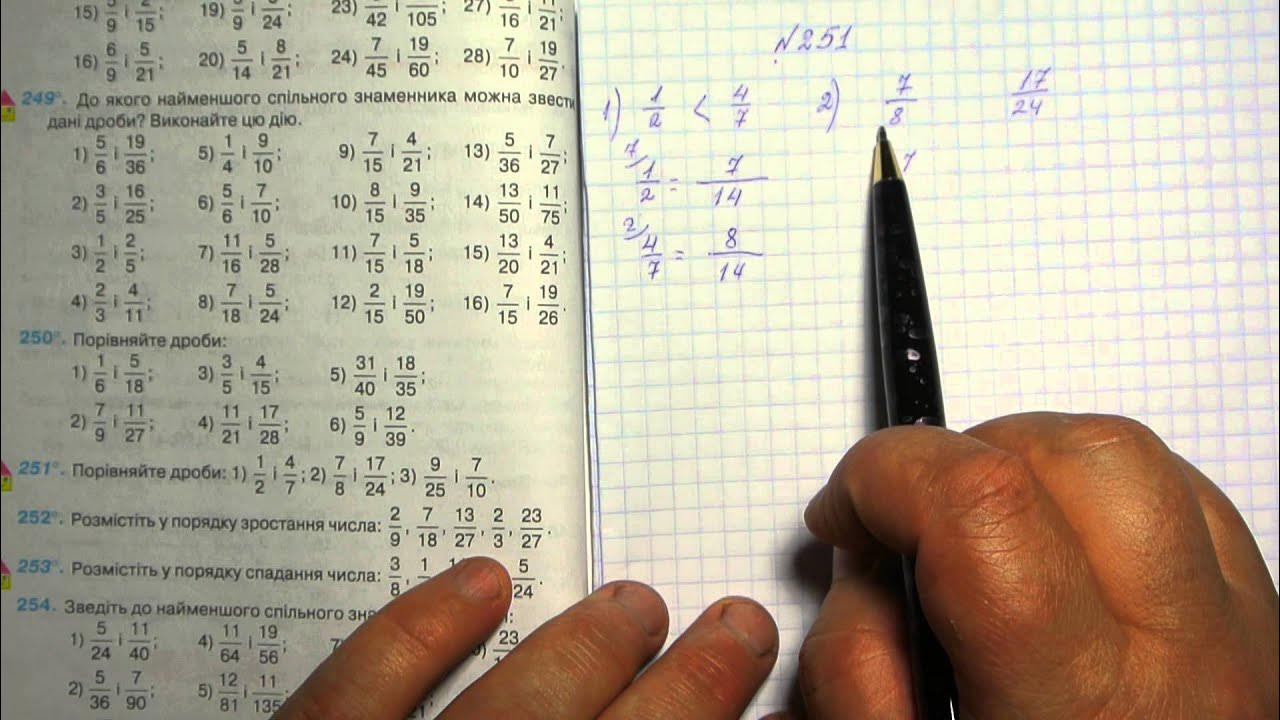 15) 5/9 і 2/15; 19) 9 і 24 23) 42 і 105 27) 16 і 21
16) 6/9 і 5/21; 20) 5/14 і 8/21; 24) 7/45 і 19/60; 28) 7/10 і 19/27.
249°. До якого найменшого спільного знаменника можна звести
дані дроби? Виконайте цю дію.
1) 5/6 і 19/36; 5) 1/4 і 9/10; 9) 7/15 і 4/21; 13) 5/36 і 7/27;
2) 3/5 і 16/25; 6) 5/6 і 7/10; 10) 8/15 і 9/35; 14) 13/50 і 11/75;
3) 1/2 і 2/5; 7) 11/16 і 5/28; 11) 7/15 і 5/18; 15) 13/20 і 4/21;
4) 2/3 і 4/11; 8) 7/18 і 5/24; 12) 2/15 і 19/50; 16) 7/15 і 19/26.
250°. Порівняйте дроби:
1) 1/6 і 5/18; 3) 3/5 і 4/15; 5) 31/40 і 18/35;
2) 7/9 і 11/27; 4) 11/21 і 17/28; 6) 5/9 і 12/39.
251°. Порівняйте дроби: 1) 1/2 і 4/7; 2) 7/8 і 17/24; 3) 9/25 і 7/10.
252°. Розмістіть у порядку зростання числа: 2/9, 7/18, 13/27, 2/3, 23/27.
253°. Розмістіть у порядку спадання числа: 3/8, 5/24.
254. Зведіть до найменшого спільного
1) 5/24 і 11/40; 4) 11/64 і 19/56; 23
2) 5/36 і 7/90; 5) 12/81 і 11/135;
№251
1) 1/2 < 4/7 2) 7/8 17/24
7/ 1/2 = 7/14 7
2/ 4/7 = 8/14